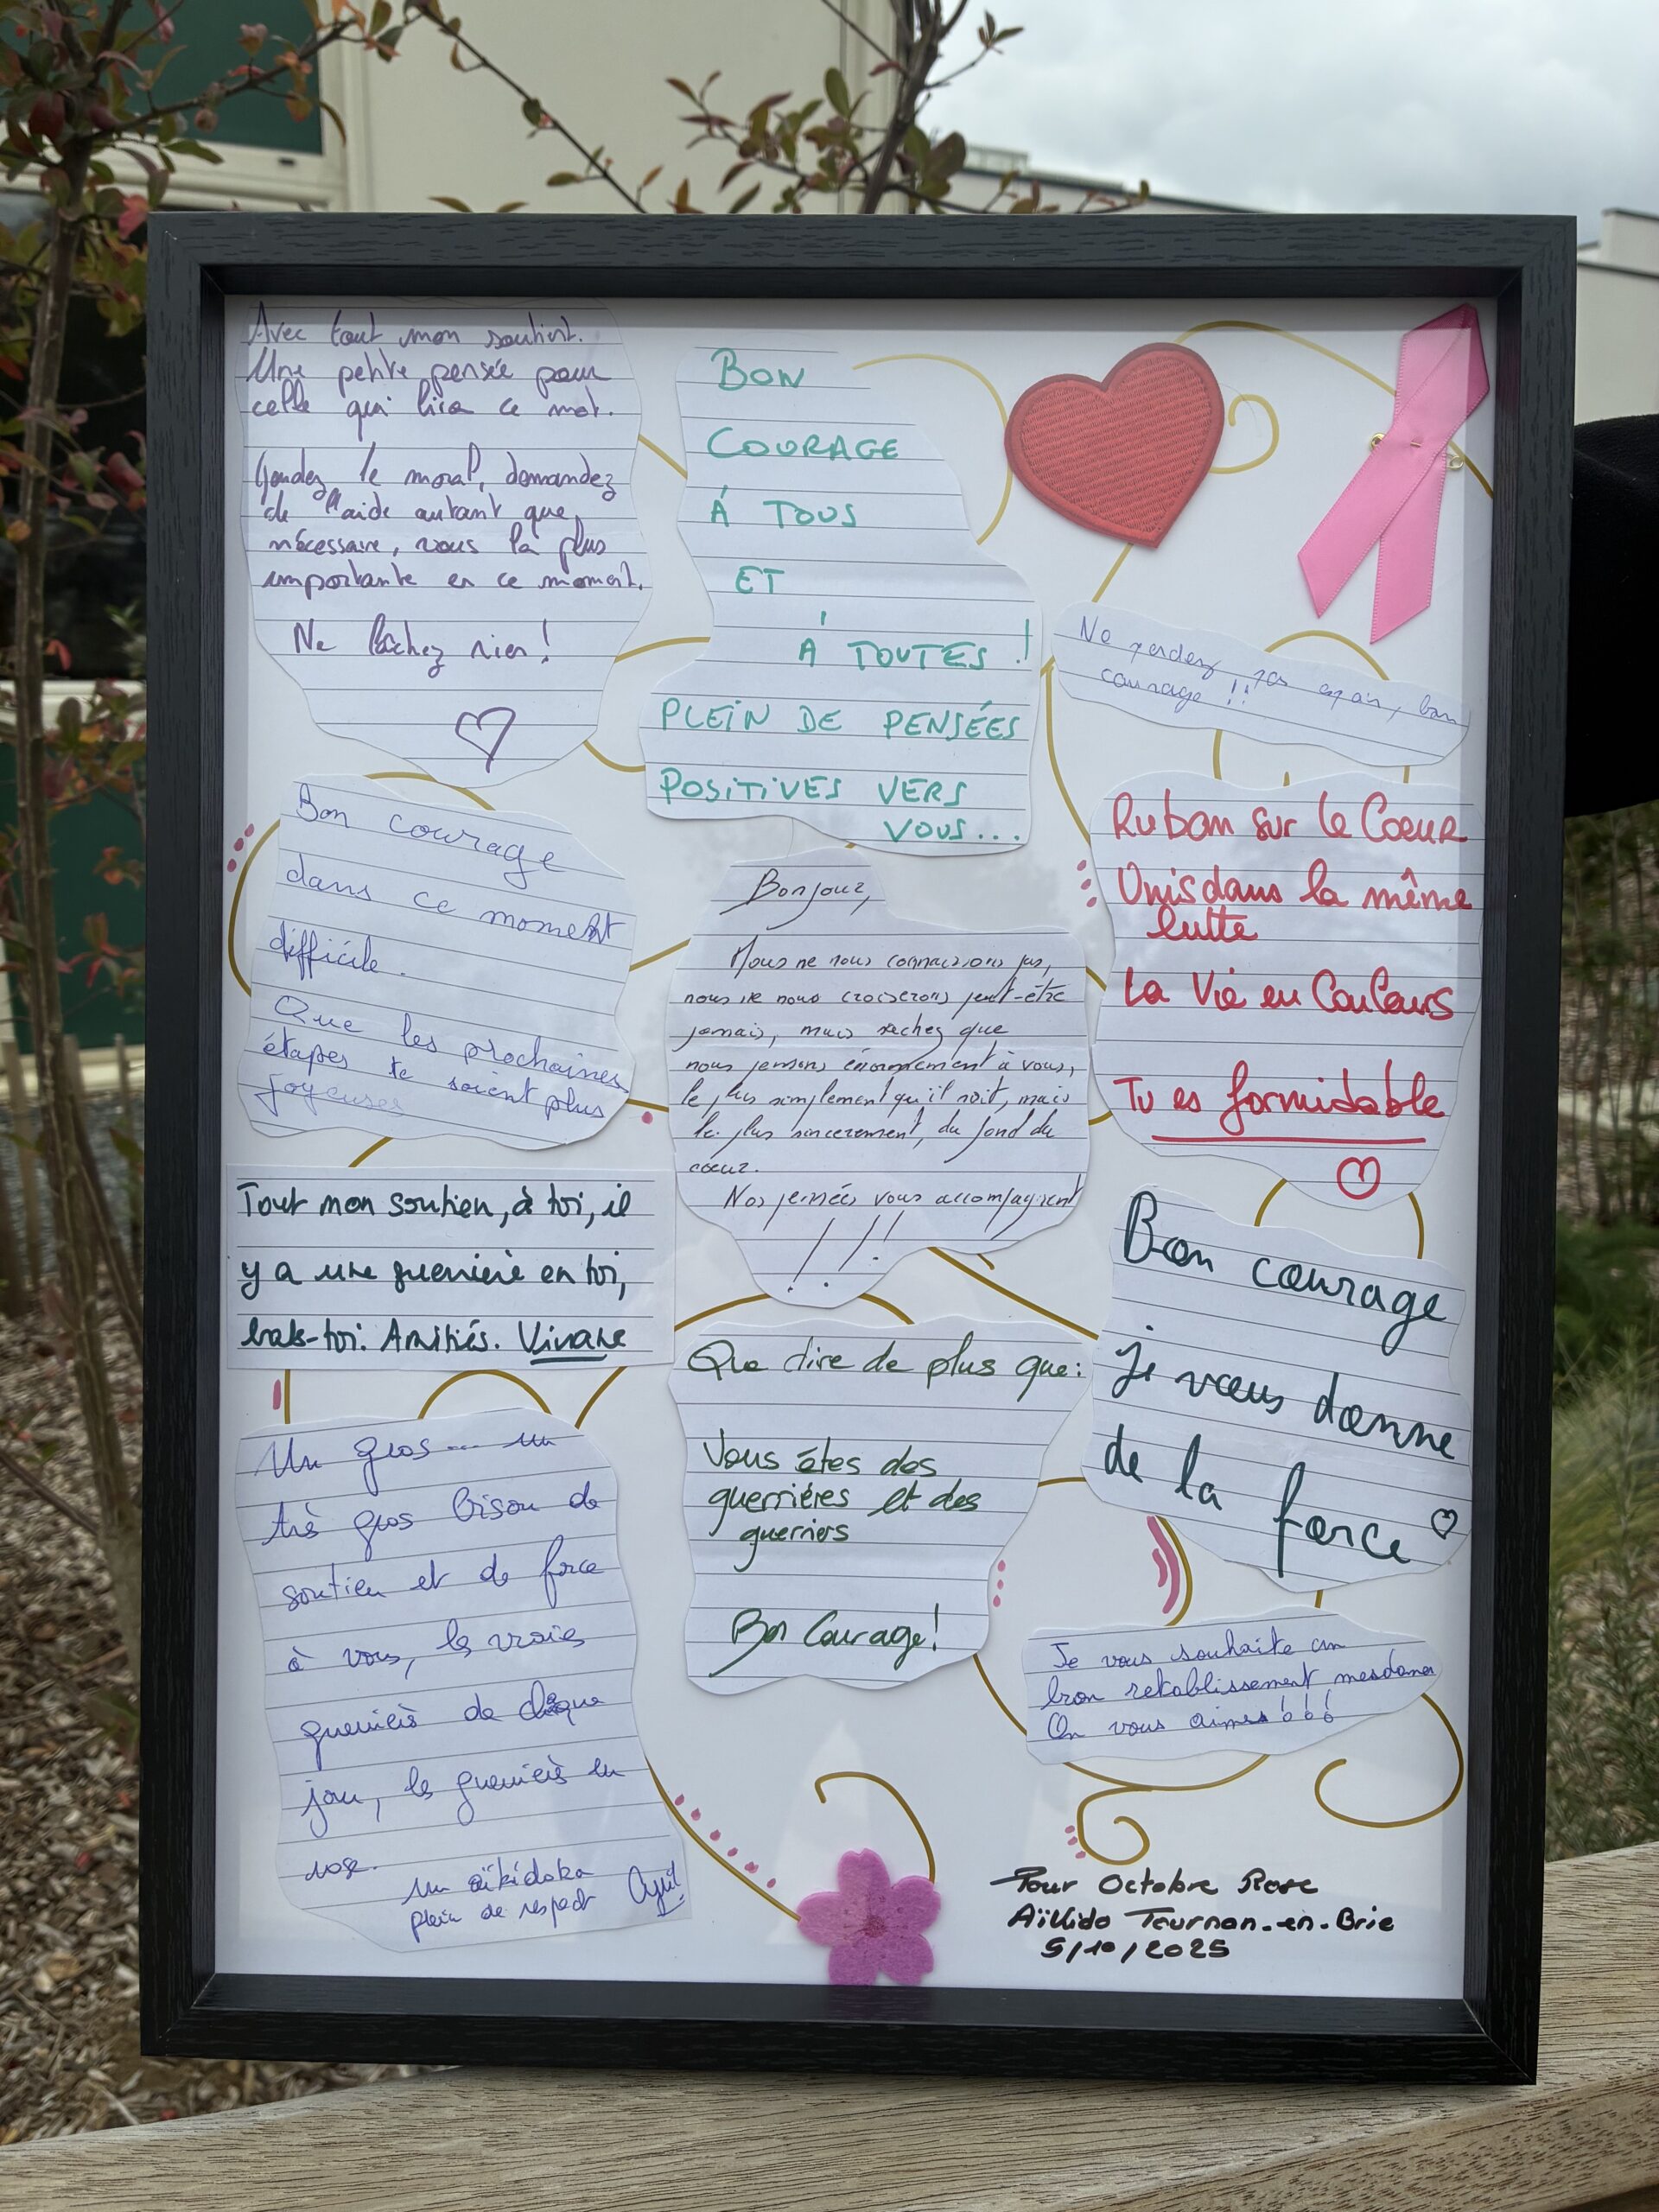 Avec tout mon soutient.
Une petite pensée pour
celle qui lira ce mot.
Gardez le moral, demandez
de l'aide autant que
nécessaire, vous la plus
importante en ce moment.
Ne lâchez rien !
BON
COURAGE
À TOUS
ET
À TOUTES !
PLEIN DE PENSÉES
POSITIVES VERS
VOUS...
Ne perdez pas espoir, bon
courage !!
Bon courage
dans ce moment
difficile.
Que les prochaines
étapes te soient plus
joyeuses
Bonjour,
Nous ne nous connaissons pas,
nous ne nous croiserons peut-être
jamais, mais sachez que
nous pensons énormément à vous,
le plus simplement qu'il soit, mais
le plus sincerement, du fond du
cœur.
Nos pensées vous accompagnent
!!!
Ruban sur le Coeur
Unis dans la même
lutte
La Vie en Couleurs
Tu es formidable
Tout mon soutien, à toi, il
y a une guerrière en toi,
bats-toi. Amitiés.
Bon courage
je vous donne
de la force
Que dire de plus que:
Vous êtes des
guerrières et des
guerriers
Bon Courage!
Un gros ... un
très gros bisou de
soutien et de force
à vous, les vraies
guerrières de chaque
jour, les guerrières en
rose.
un aïkidoka
plein de respect
Je vous souhaite un
bon retablissement mesdames
On vous aimes !!!
Pour Octobre Rose
Aïkido Tournan-en-Brie
5/10/2025